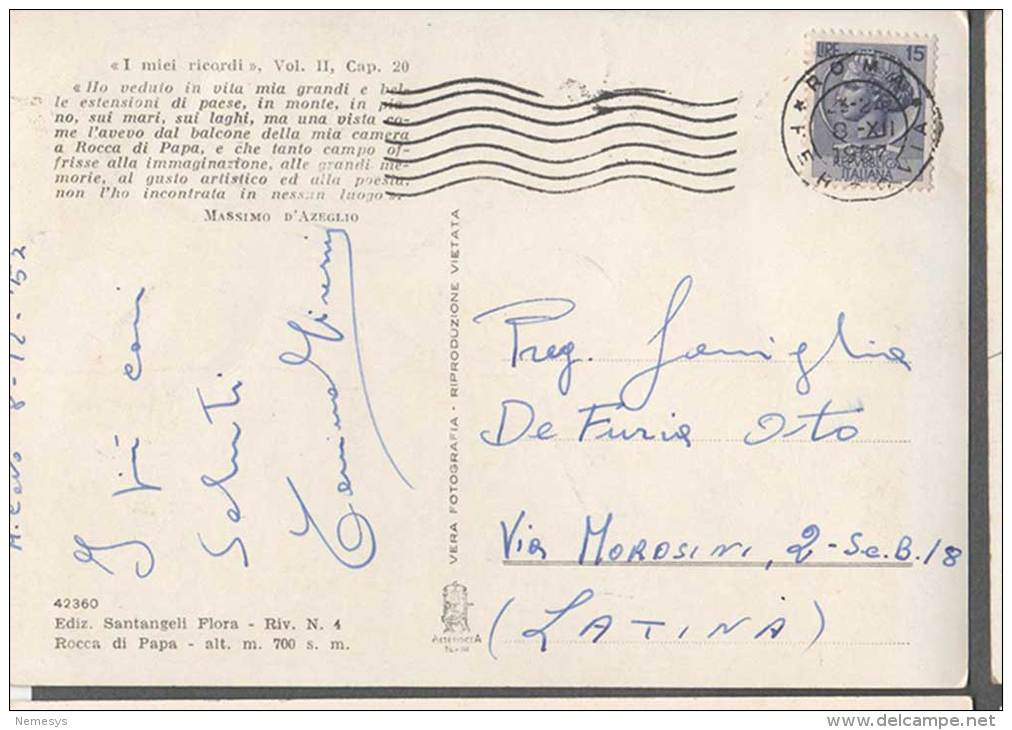 « I miei ricordi », Vol. II, Cap. 20
« Ho veduto in vita mia grandi e bel-
le estensioni di paese, in monte, in pia-
no, sui mari, sui laghi, ma una vista co-
me l'avevo dal balcone della mia camera
a Rocca di Papa, e che tanto campo of-
frisse alla immaginazione, alle grandi me-
morie, al gusto artistico ed alla poesia,
non l'ho incontrata in nessun luogo ».
MASSIMO D'AZEGLIO
LIRE 15
ITALIANA
ROMA
8-XII
1957
FERROVIA
8-12-'57
I più cari
Saluti
VERA FOTOGRAFIA - RIPRODUZIONE VIETATA
Preg. Famiglia
De Furia Oto
Via MOROSINI, 2-Sc.B/8
(LATINA)
42360
Ediz. Santangeli Flora - Riv. N. 4
Rocca di Papa - alt. m. 700 s. m.
Nemesys
www.delcampe.net